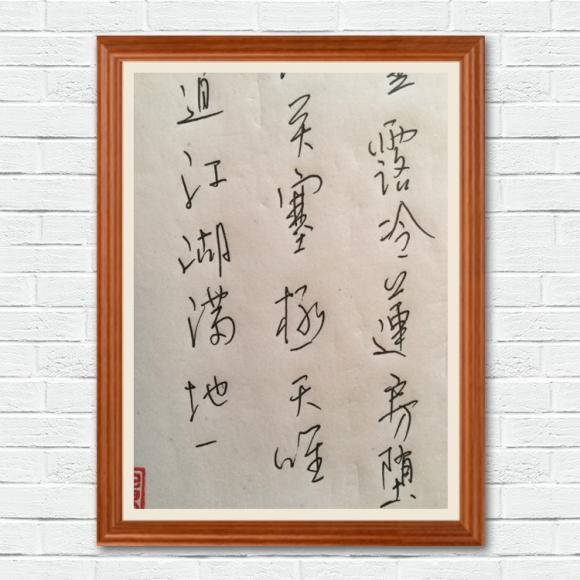 露冷蓮房堕
关塞極天唯
道江湖满地一